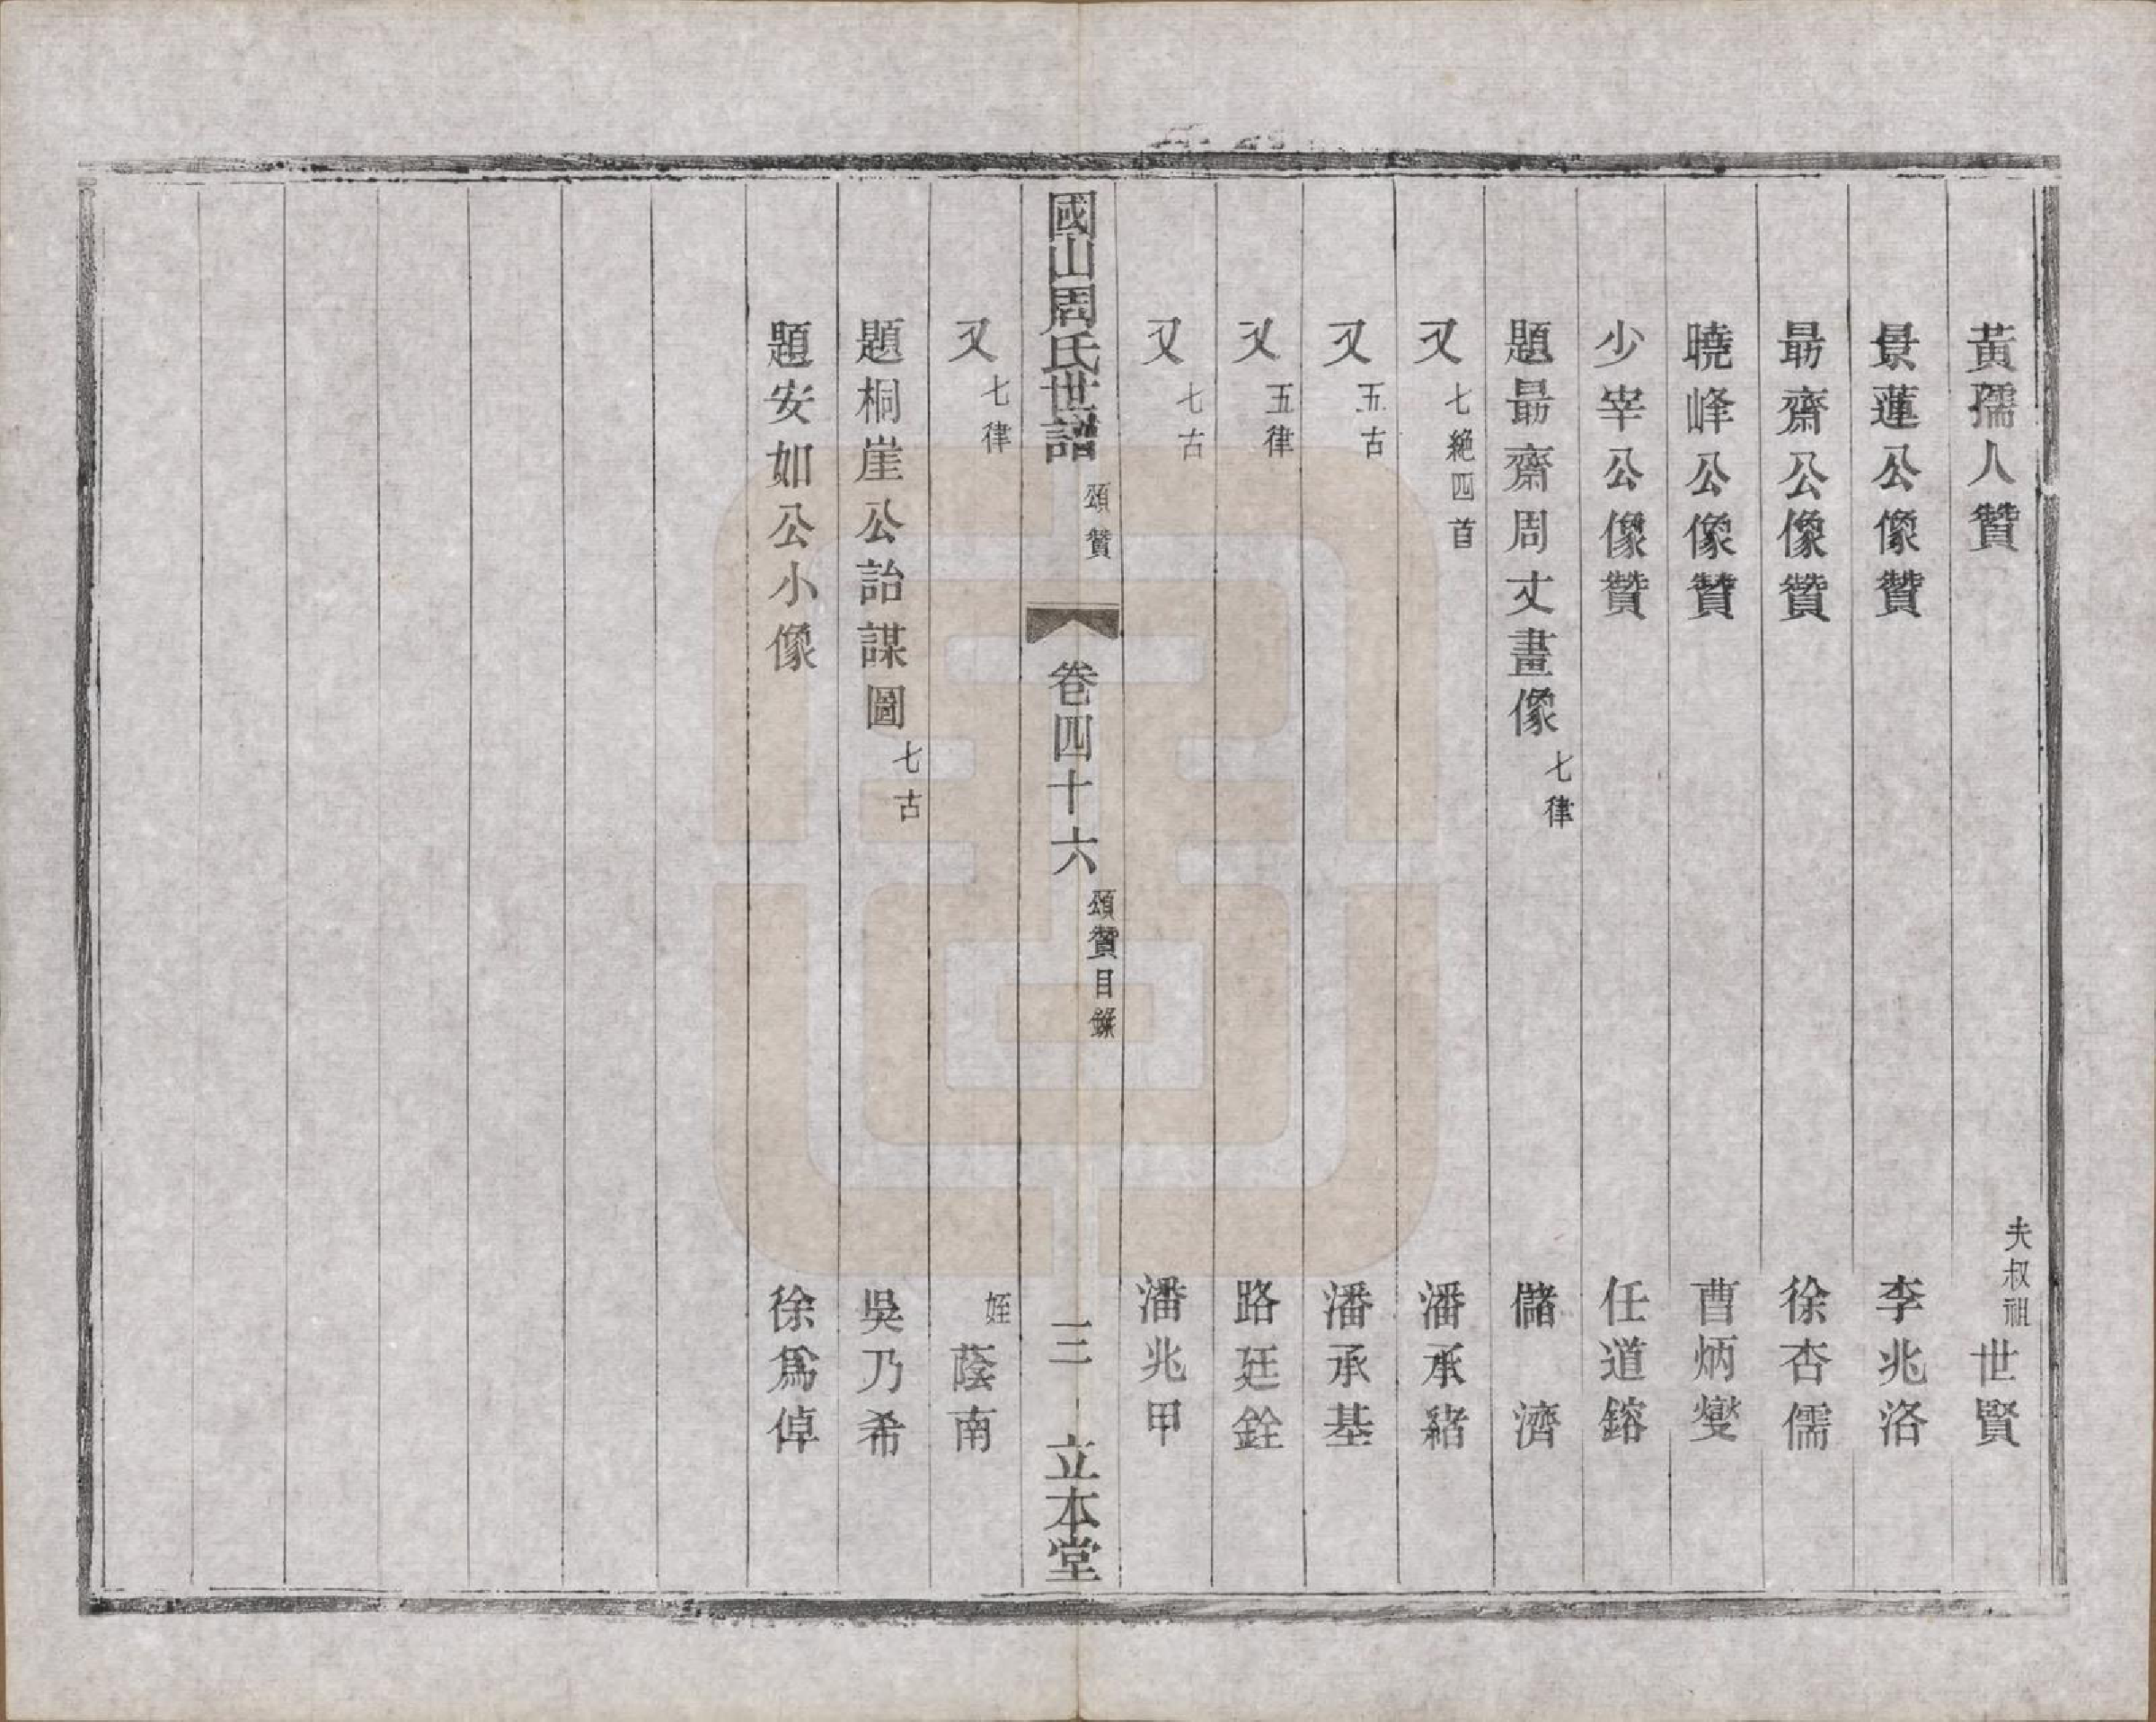 黃孺人贊 夫叔祖世賢
景蓮公像贊 李兆洛
最齋公像贊 徐杏儒
曉峰公像贊 曹炳燮
少宰公像贊 任道鎔
題最齋周丈畫像 七律 儲濟
又 七絕四首 潘承緒
又 五古 潘承基
又 五律 路廷銓
又 七古 潘兆甲
國山周氏世譜 頌贊 卷四十六 頌贊目錄 三 立本堂
又 七律 姪蔭南
題桐崖公詒謀圖 七古 吳乃希
題安如公小像 徐爲倬